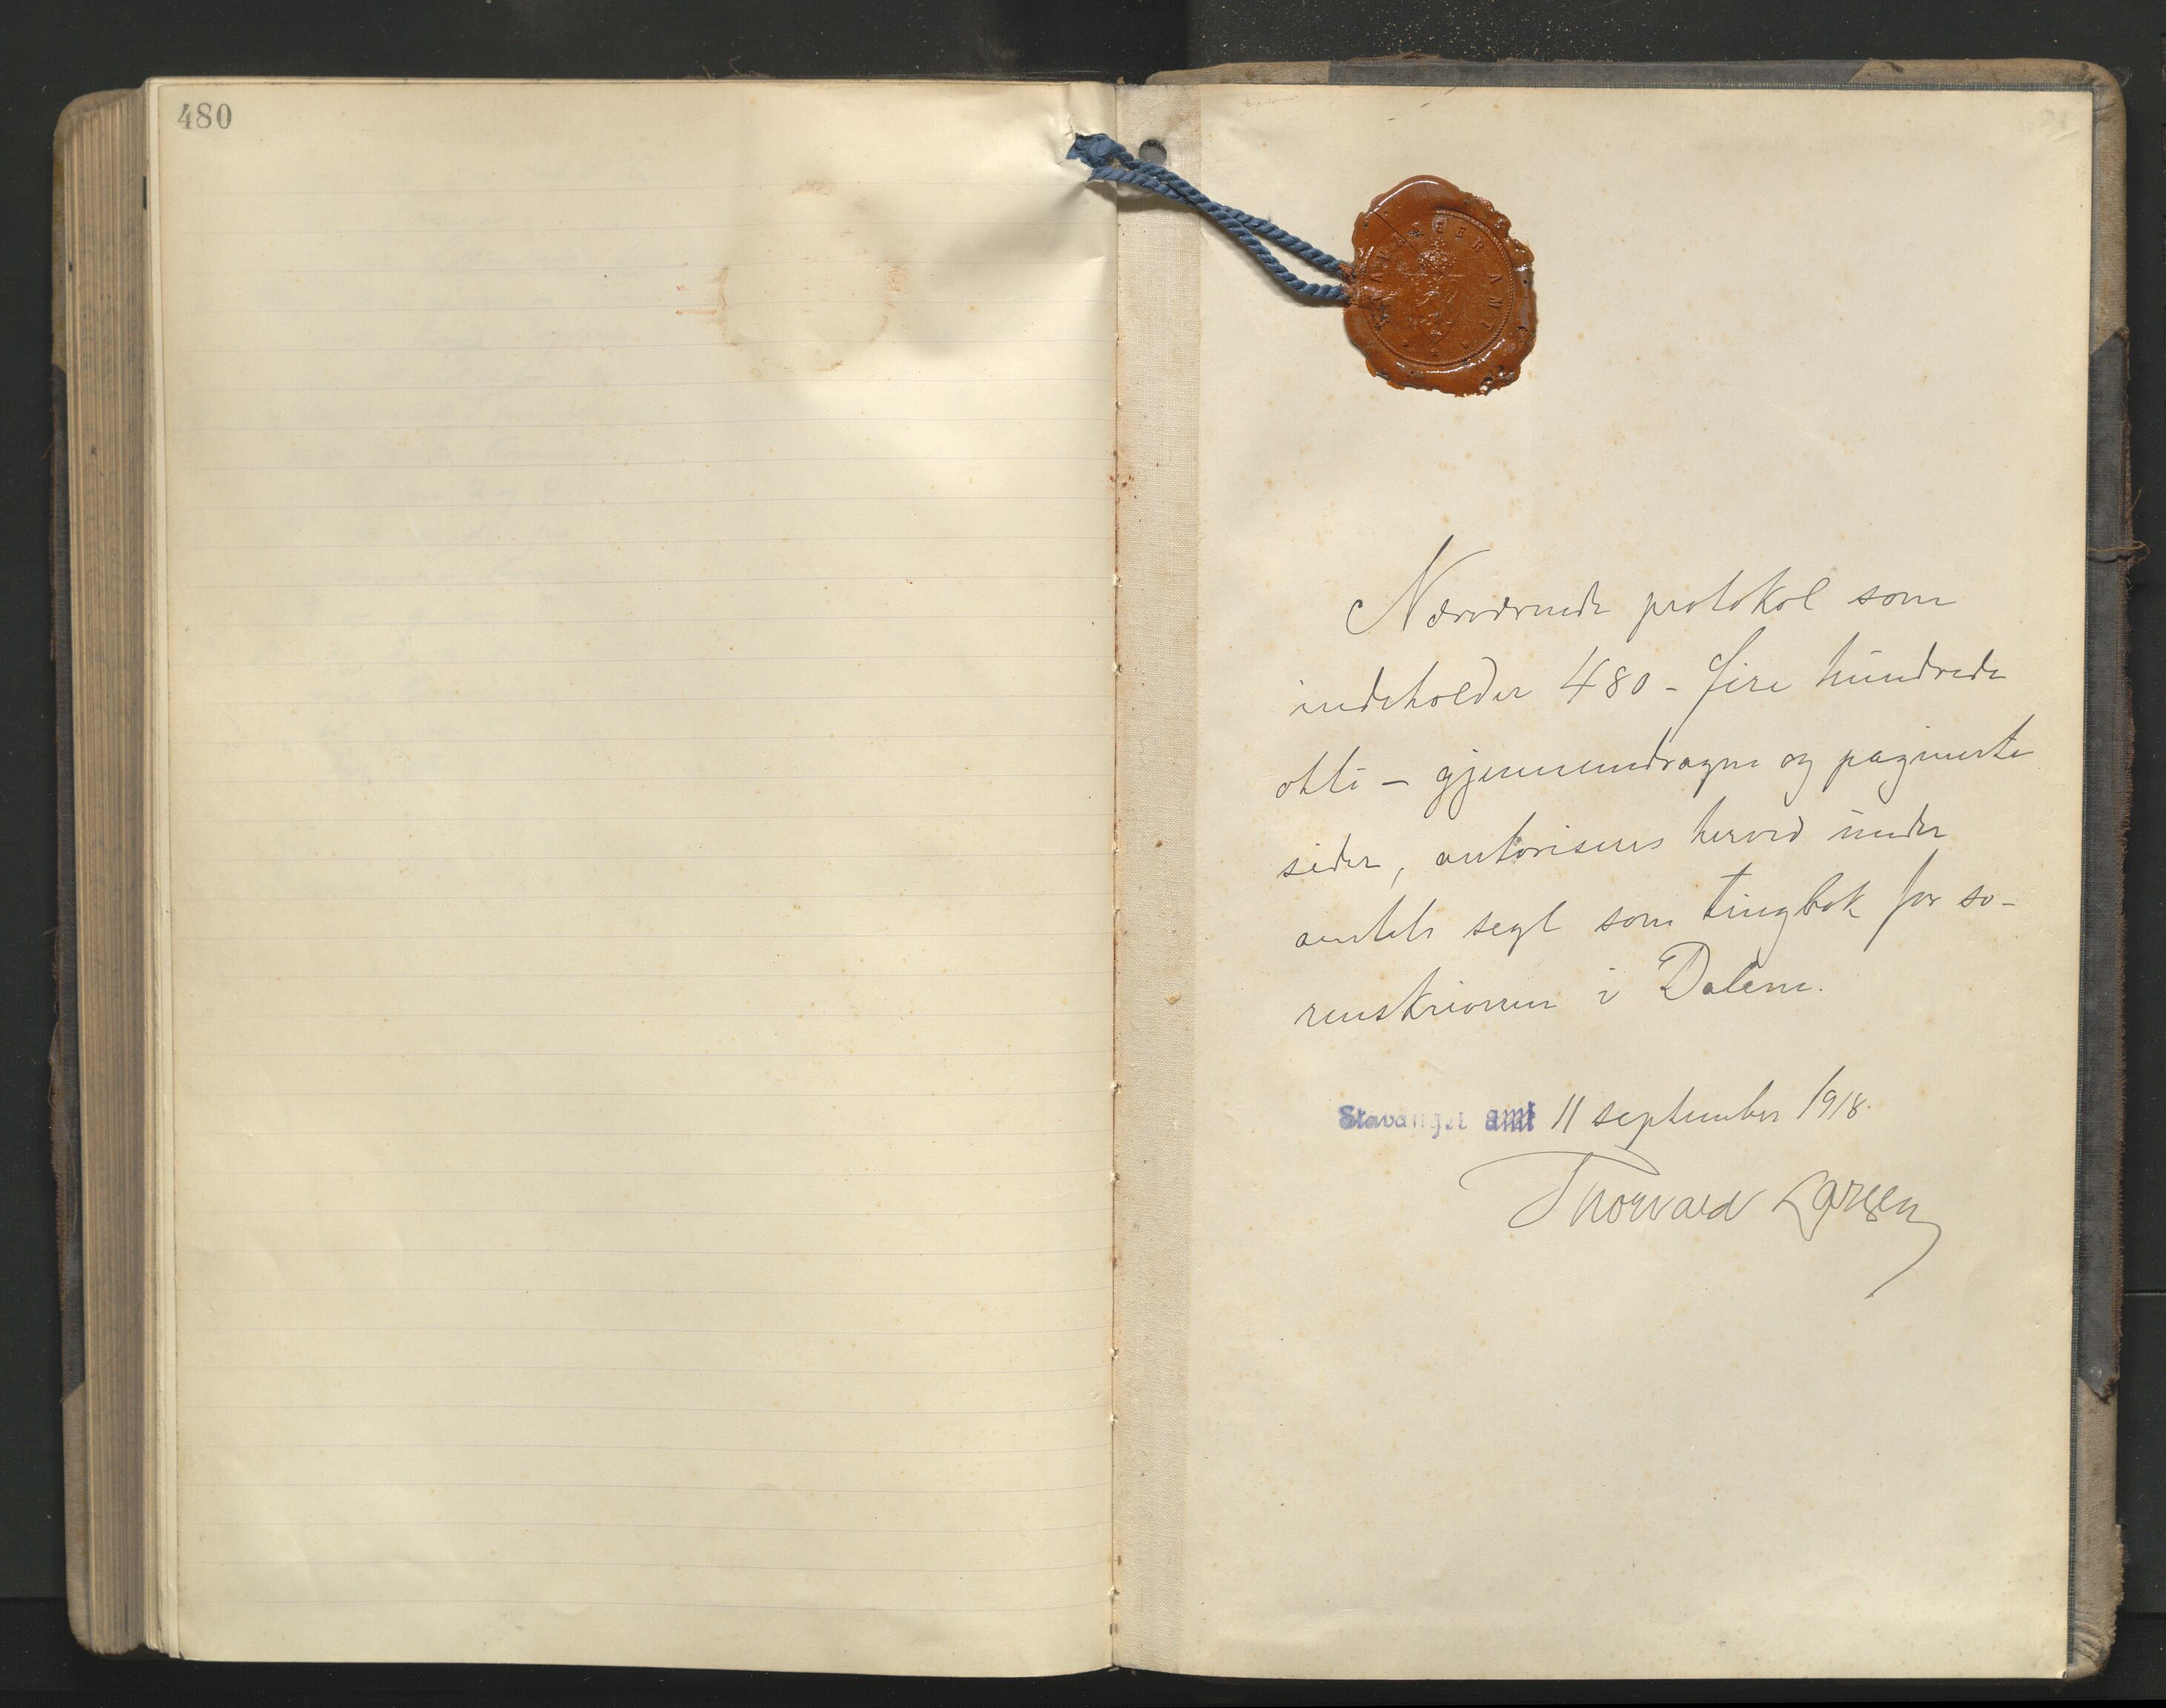 480
STAVANGER AMT
Nærværende protokol som
indeholder 480 - fire hundrede
otti - gjennemdragne og paginerte
sider, autoriseres herved under
amtets segl som tingbok for so-
renskriveren i Dalene.
Stavanger amt 11 september 1918.
Thorvald Larsen